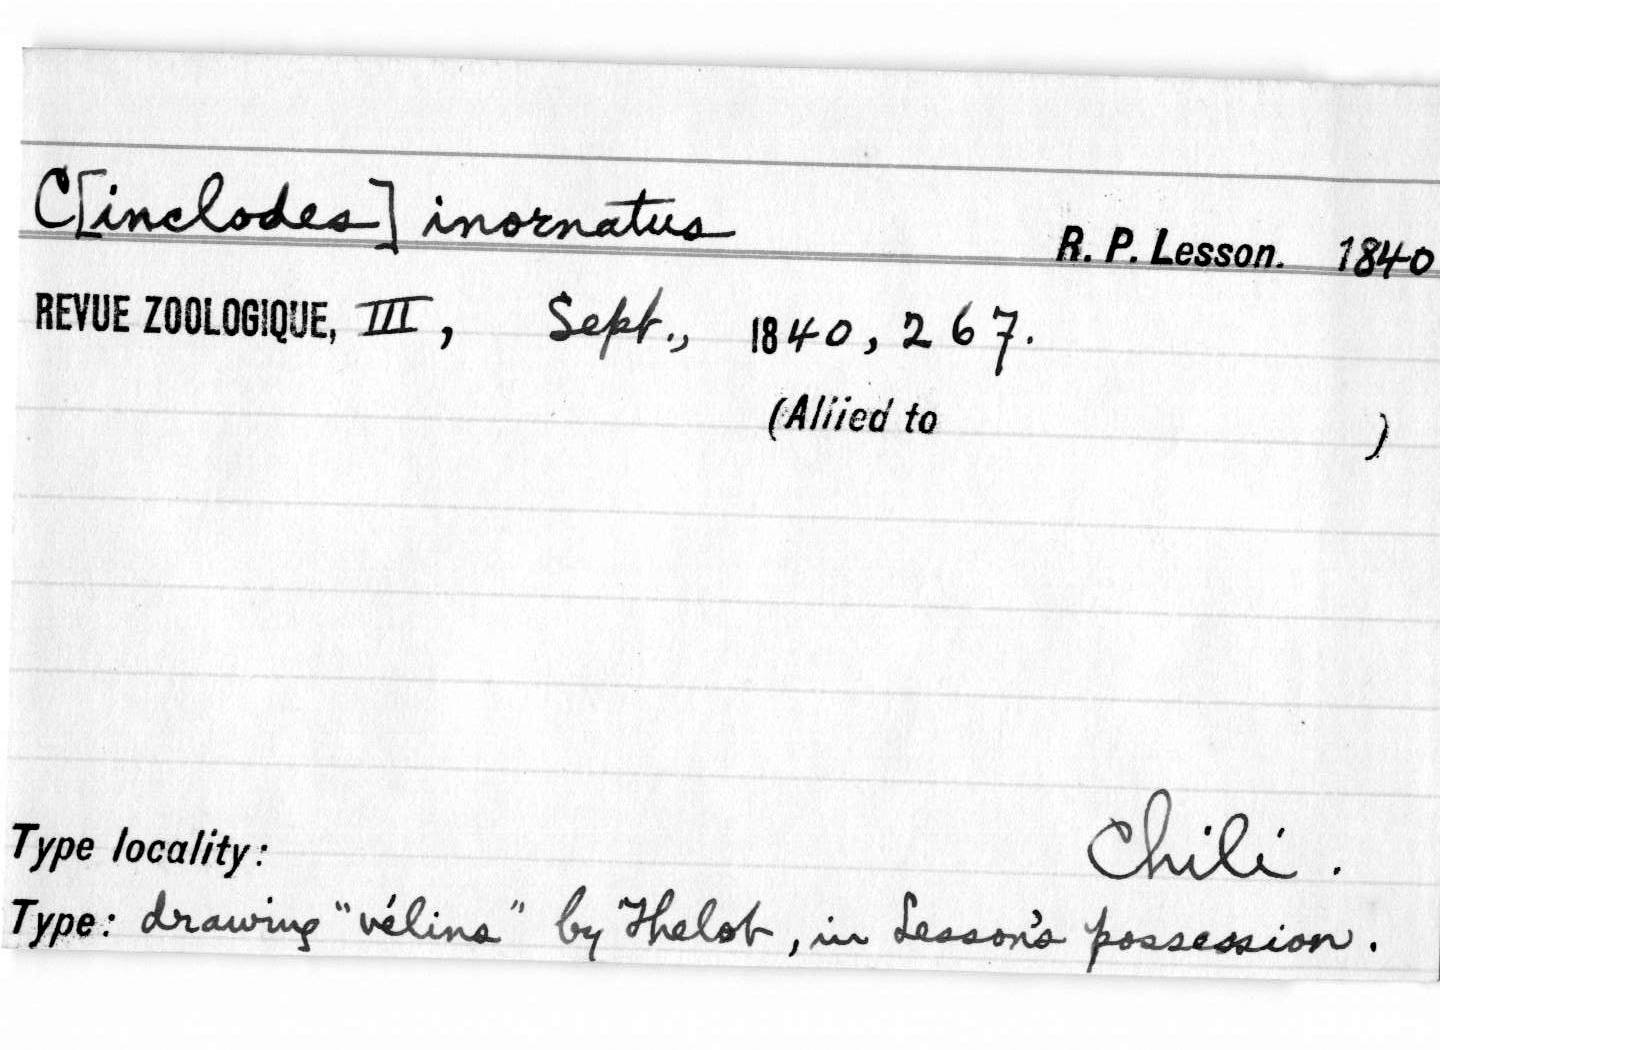 C[inclodes] inornatus
R. P. Lesson. 1840
REVUE ZOOLOGIQUE, III, Sept., 1840, 267.
(Allied to )
Type locality: Chili.
Type: drawing "vélins" by Thelot, in Lesson's possession.